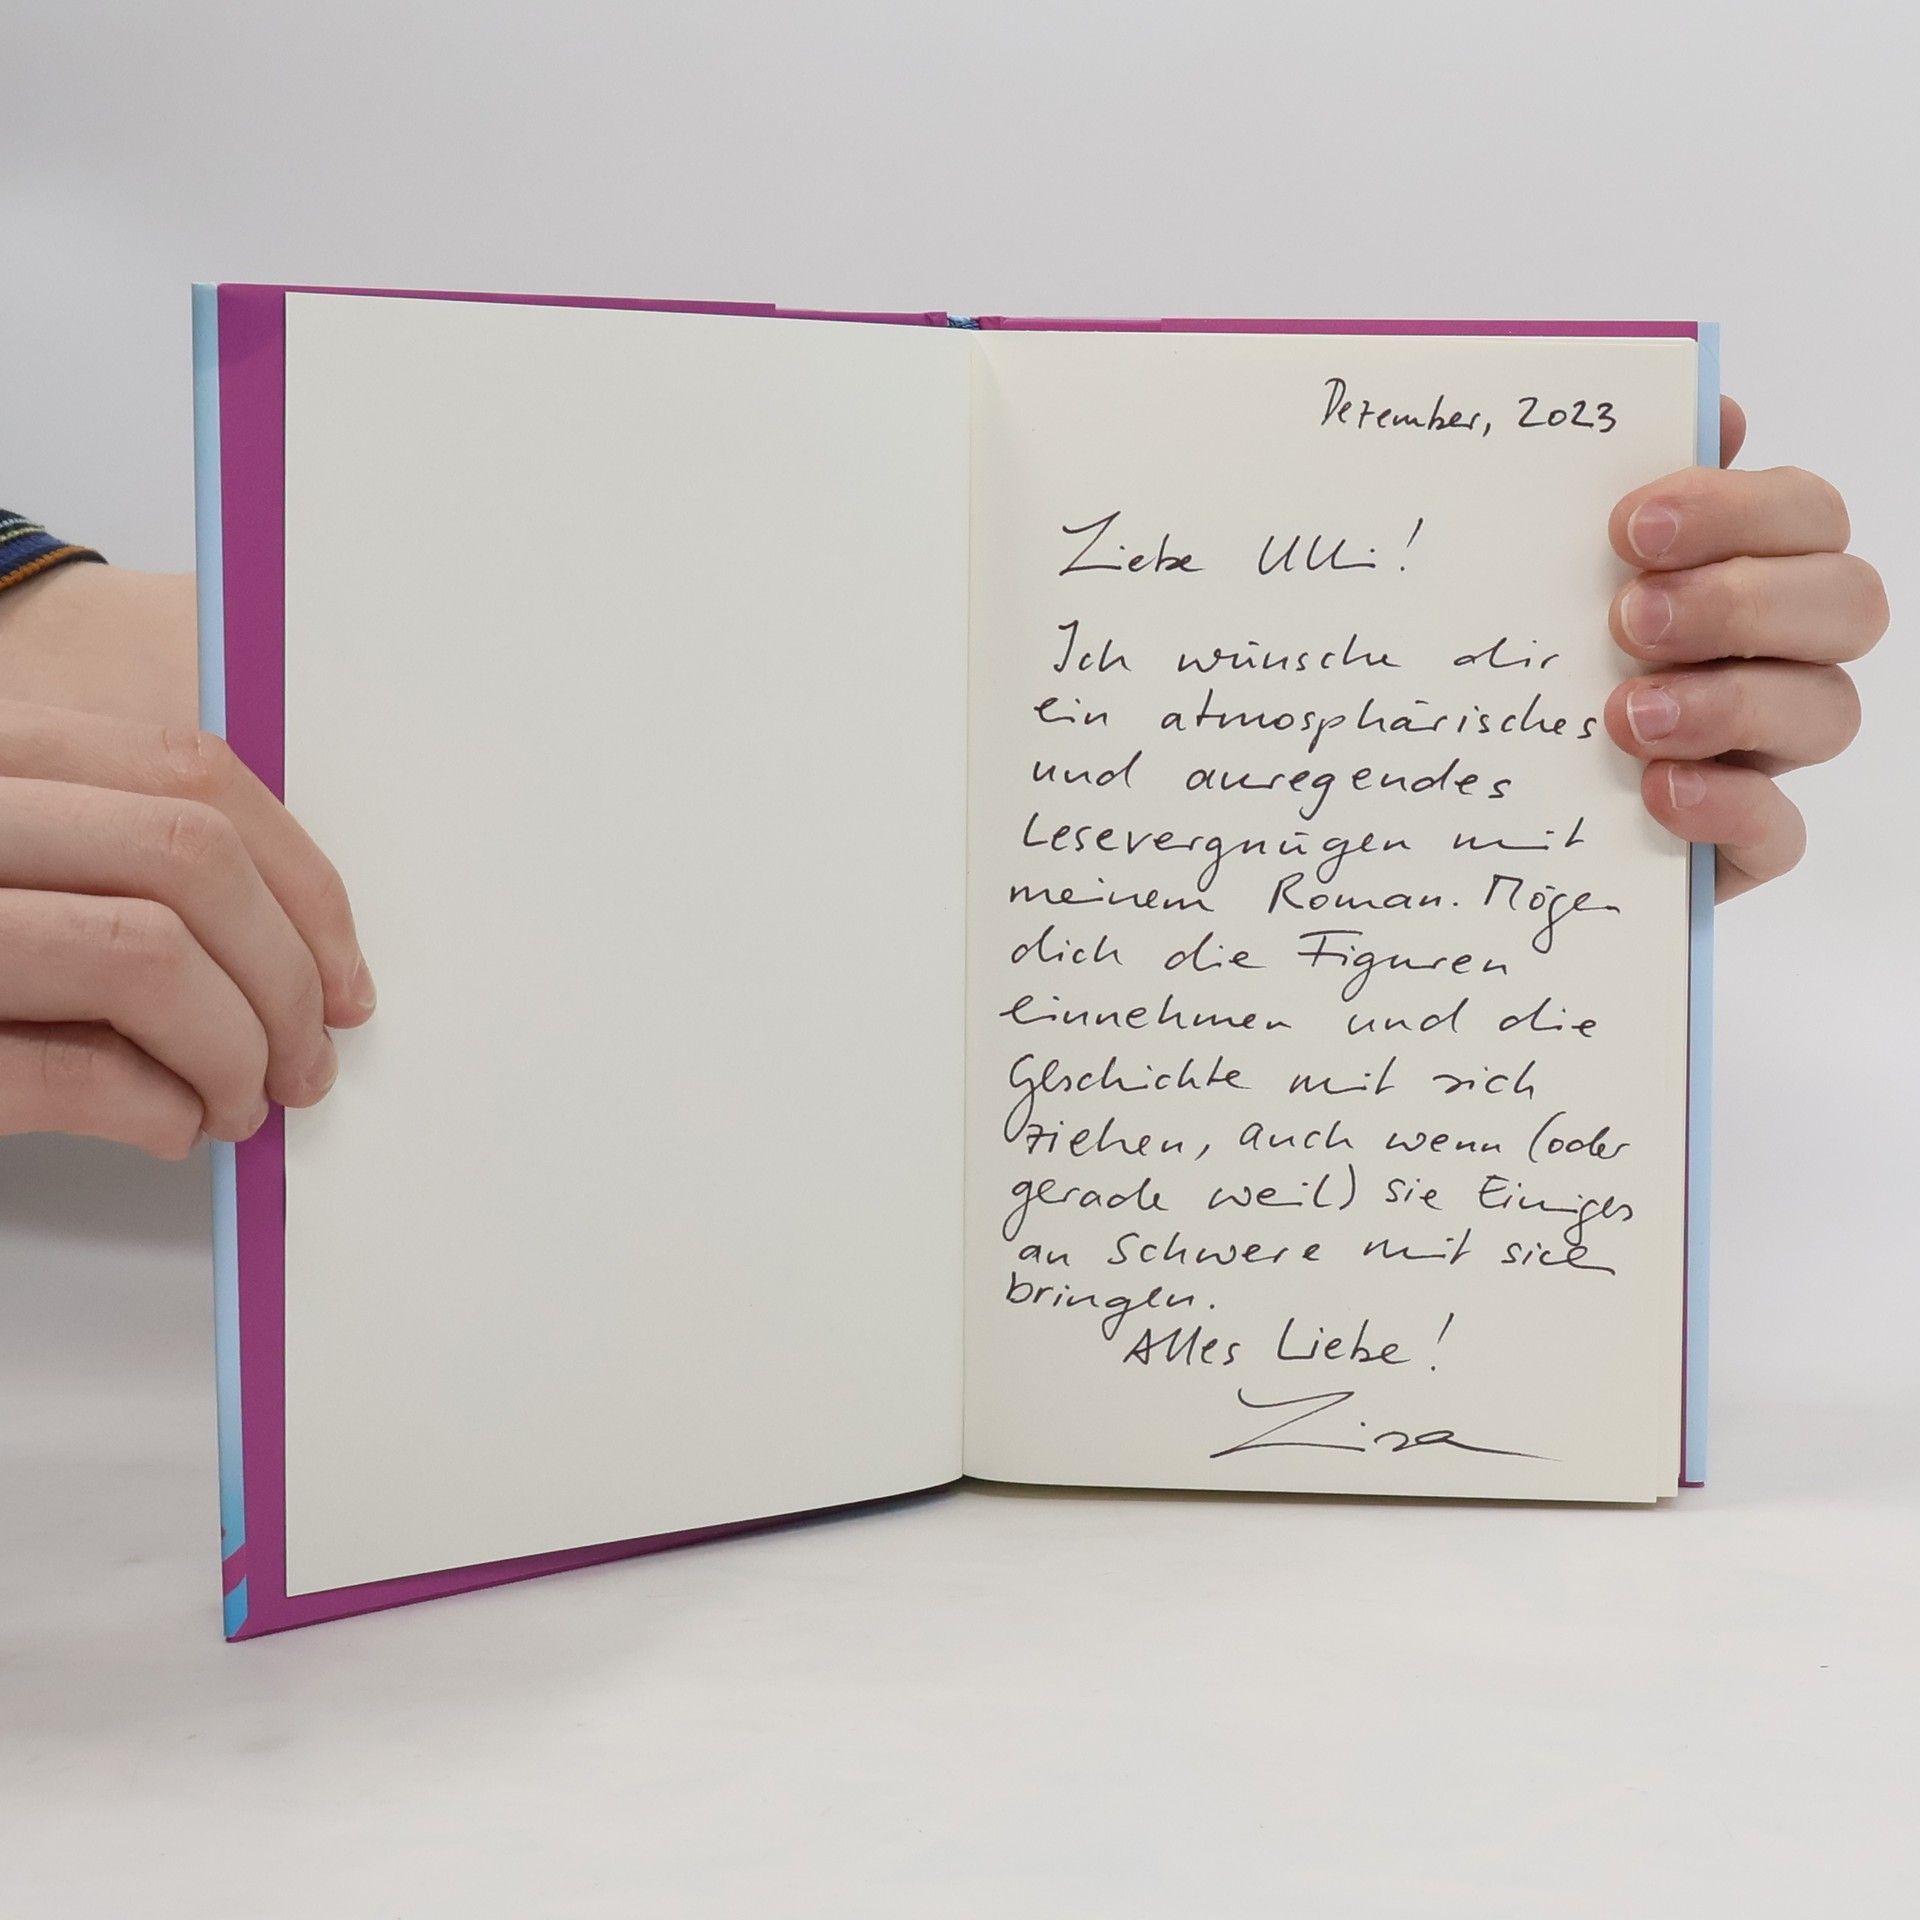 Dezember, 2023
Liebe Ulli!
Ich wünsche dir
ein atmosphärisches
und anregendes
Lesevergnügen mit
meinem Roman. Mögen
dich die Figuren
einnehmen und die
Geschichte mit sich
ziehen, auch wenn (oder
gerade weil) sie Einiges
an Schwere mit sich
bringen.
Alles Liebe!
Lisa